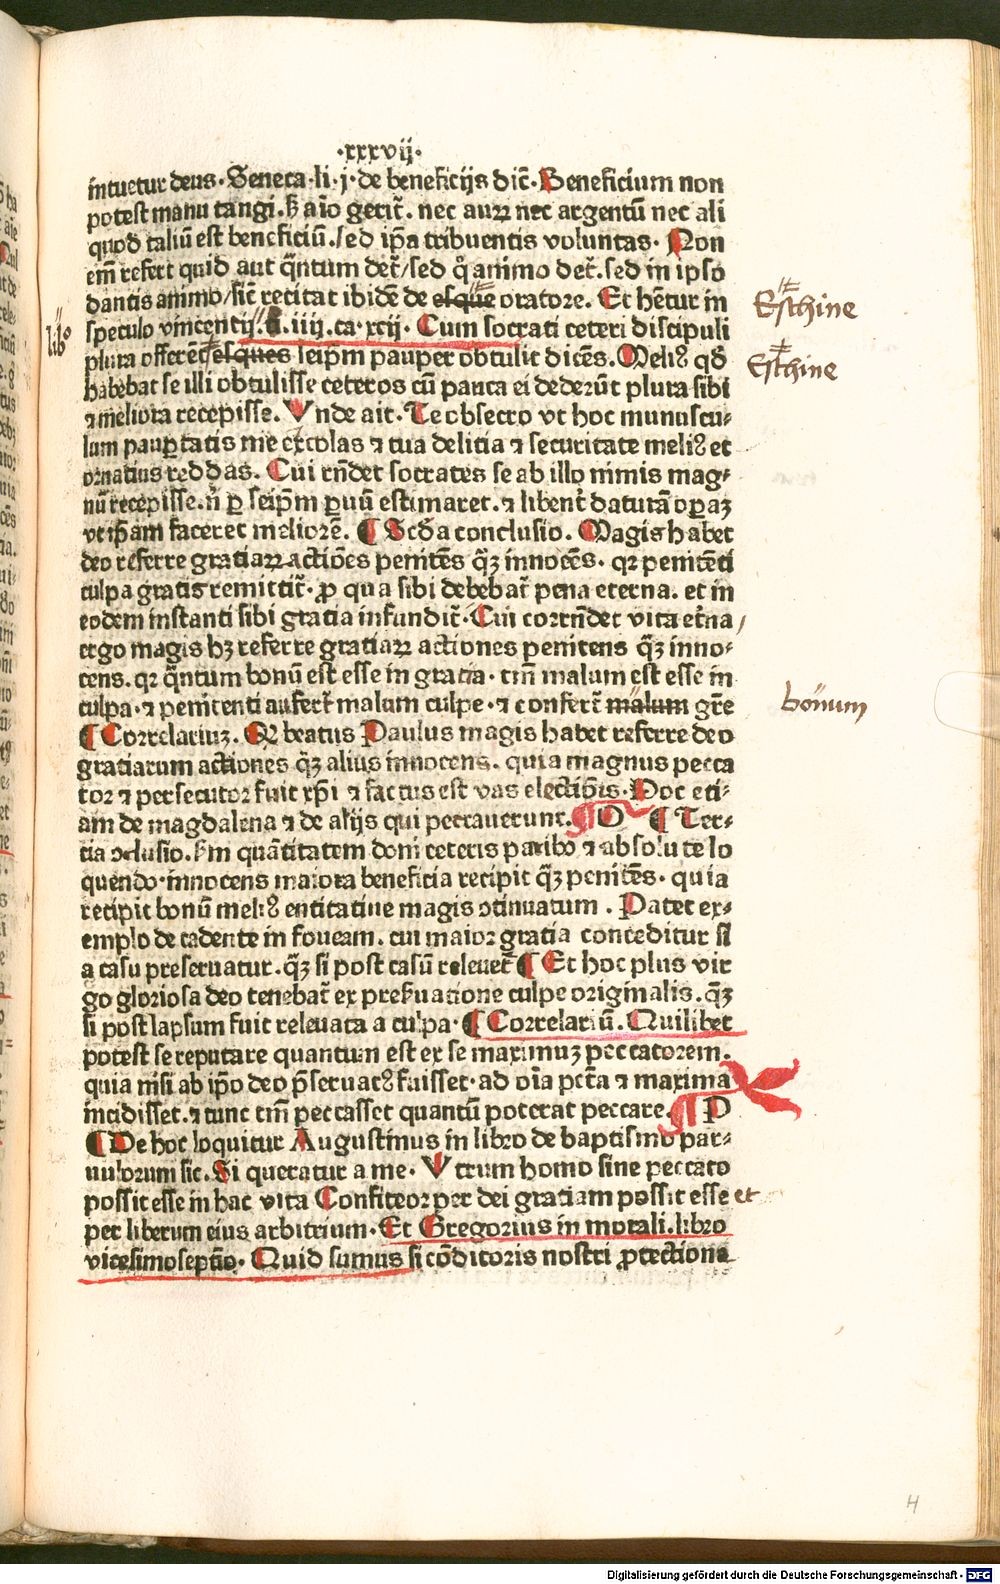 ·xxxvij·
intuetur deus. Seneca li. j. de beneficijs dic̄. Beneficium non
potest manu tangi. h̄ aīo gerit̄. nec auꝝ nec argentū nec ali
quod taliū est beneficiū. sed ip̄a tribuentis voluntas. Non
em̄ refert quid aut q̄ntum det̄/sed q̊ animo det̄. sed in ipso
dantis animo/sic̄ recitat ibidē de esque oratore. Et hētur in
Eschine
speculo vincentij. li. iiij. ca. xcij. Cum socrati ceteri discipuli
lib°
plura offerēt esques seip̄m pauper obtulit dicēs. Meliꝰ qđ
Eschine
habebat se illi obtulisse ceteros cū pauca ei dederūt plura sibi
⁊ meliora recepisse. Vnde ait. Te obsecro vt hoc munuscu⸗
lum paup̱tatis me excolas ⁊ tua delitia ⁊ securitate meliꝰ et
ornatius reddas. Cui rn̄det socrates se ab illo nimis mag⸗
nū recepisse. n̄ ꝑ seip̄m ꝑuū estimaret. ⁊ libent̄ daturā oꝑaꝫ
vt ip̄am faceret meliorē. ¶ Scđa conclusio. Magis habet
deo referre gratiaꝝ actiōes penitēs q̄ꝫ innocēs. qꝛ penitēti
culpa gratis remittit̄. ꝓ qua sibi debebat̄ pena eterna. et in
eodem instanti sibi gratia infundit̄. Cui corrn̄det vita et̄na
ergo magis hꝫ referre gratiaꝝ actiones penitens q̄ꝫ inno⸗
cens. qꝛ q̄ntum bonū est esse in gratia. tm̄ malum est esse in
culpa. ⁊ penitenti aufert̄ malum culpe. ⁊ confert̄ malum gr̄e
bonum
¶ Correlariuꝫ. Qꝛ beatus Paulus magis habet referre deo
gratiarum actiones q̄ꝫ alius innocens. quia magnus pecca
tor ⁊ persecutor fuit xp̄i ⁊ factus est vas electiōis. Hoc eti⸗
am de magdalena ⁊ de alijs qui peccauerunt. ¶ O ¶ Ter⸗
tia ꝯclusio. Scđm quātitatem doni ceteris paribꝰ ⁊ absolute lo
quendo innocens maiora beneficia recipit q̄ꝫ penitēs. quia
recipit bonū meliꝰ entitatiue magis ꝯtinuatum. Patet ex⸗
emplo de cadente in foueam. cui maior gratia conceditur si
a casu preseruatur. q̄ꝫ si post casū releuet̄ ¶ Et hoc plus vir
go gloriosa deo tenebat̄ ex preẜuatione culpe originalis. q̄ꝫ
si post lapsum fuit releuata a culpa. ¶ Correlariū. Quilibet
potest se reputare quantum est ex se maximuꝫ peccatorem.
quia nisi ab ip̄o deo p̄seruatꝰ fuisset. ad oīa pctā ⁊ maxima
incidisset. ⁊ tunc tm̄ peccasset quantū poterat peccare. ¶ P
¶ De hoc loquitur Augustinus in libro de baptismo par⸗
uulorum sic. Si queratur a me. Vtrum homo sine peccato
possit esse in hac vita Confiteor per dei gratiam possit esse et
per liberum eius arbitrium. Et Gregorius in morali. libro
vicesimoseptīo. Quid sumus si cōditoris nostri ꝓtectione
H
Digitalisierung gefördert durch die Deutsche Forschungsgemeinschaft - DFG